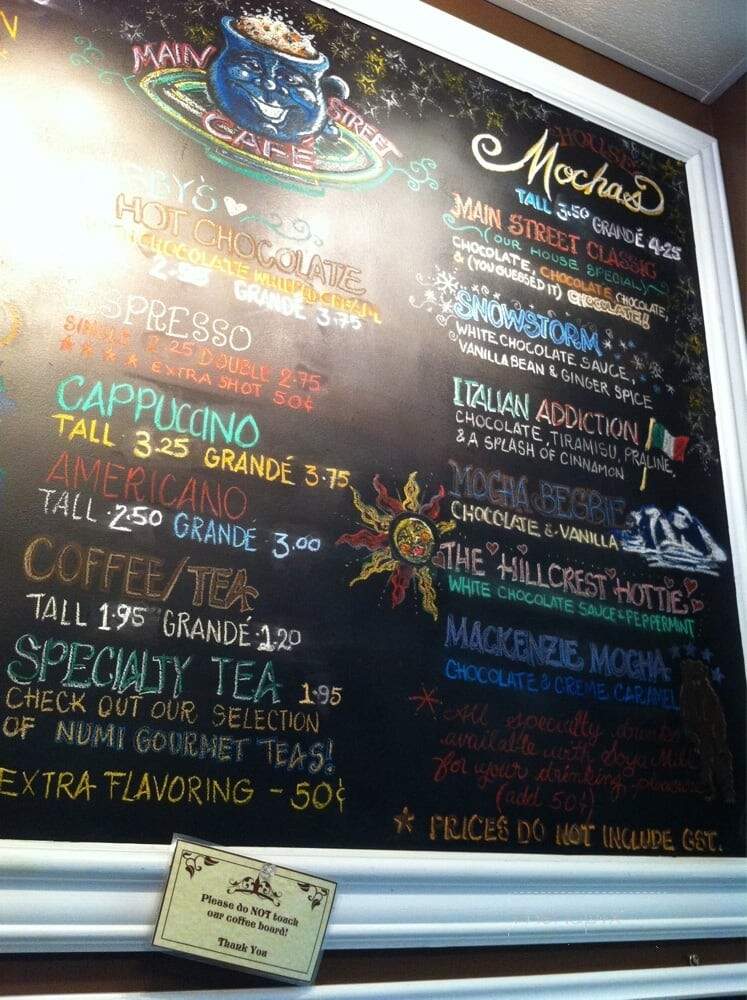 MAIN STREET
CAFÉ
BY'S
HOT CHOCOLATE
CHOCOLATE WHIPPED CREAM
2.95 GRANDÉ 3.75
ESPRESSO
SINGLE 2.25 DOUBLE 2.75
EXTRA SHOT 50¢
CAPPUCCINO
TALL 3.25 GRANDÉ 3.75
AMERICANO
TALL 2.50 GRANDÉ 3.00
COFFEE/TEA
TALL 1.95 GRANDÉ 2.20
SPECIALTY TEA 1.95
CHECK OUT OUR SELECTION
OF NUMI GOURMET TEAS!
EXTRA FLAVORING - 50¢
HOUSE
Mochas
TALL 3.50 GRANDÉ 4.25
MAIN STREET CLASSIC
(OUR HOUSE SPECIAL)
CHOCOLATE, CHOCOLATE CHOCOLATE,
& (YOU GUESSED IT) CHOCOLATE!!
SNOWSTORM
WHITE CHOCOLATE SAUCE,
VANILLA BEAN & GINGER SPICE
ITALIAN ADDICTION
CHOCOLATE, TIRAMISU, PRALINE,
& A SPLASH OF CINNAMON
MOCHA BEGBIE
CHOCOLATE & VANILLA
THE HILLCREST HOTTIE
WHITE CHOCOLATE SAUCE & PEPPERMINT
MACKENZIE MOCHA
CHOCOLATE & CREME CARAMEL
* All specialty drinks
available with Soya Milk
for your drinking pleasure
(add 50¢)
* PRICES DO NOT INCLUDE GST.
Please do NOT touch
our coffee board!
Thank You